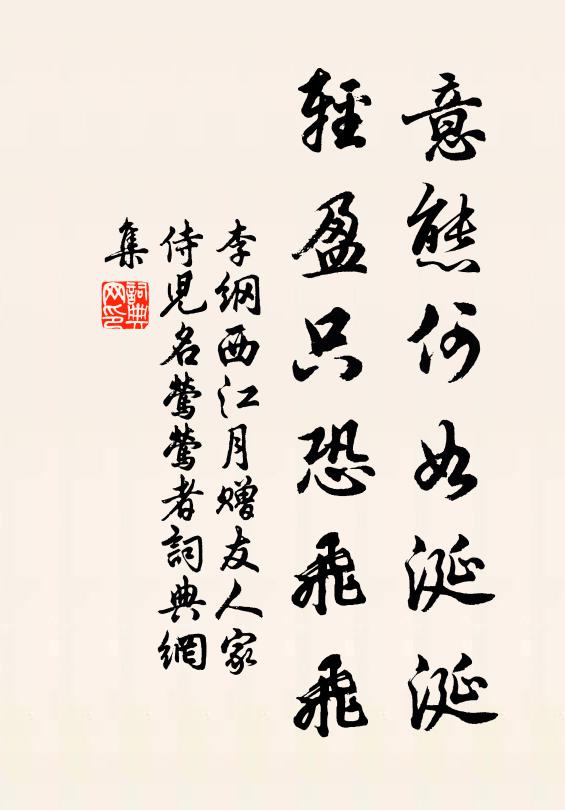 意態何如涎涎
輕盈只恐飛飛
李綱西江月贈友人家
侍兒名鶯鶯者詞典網
集
詞典网印